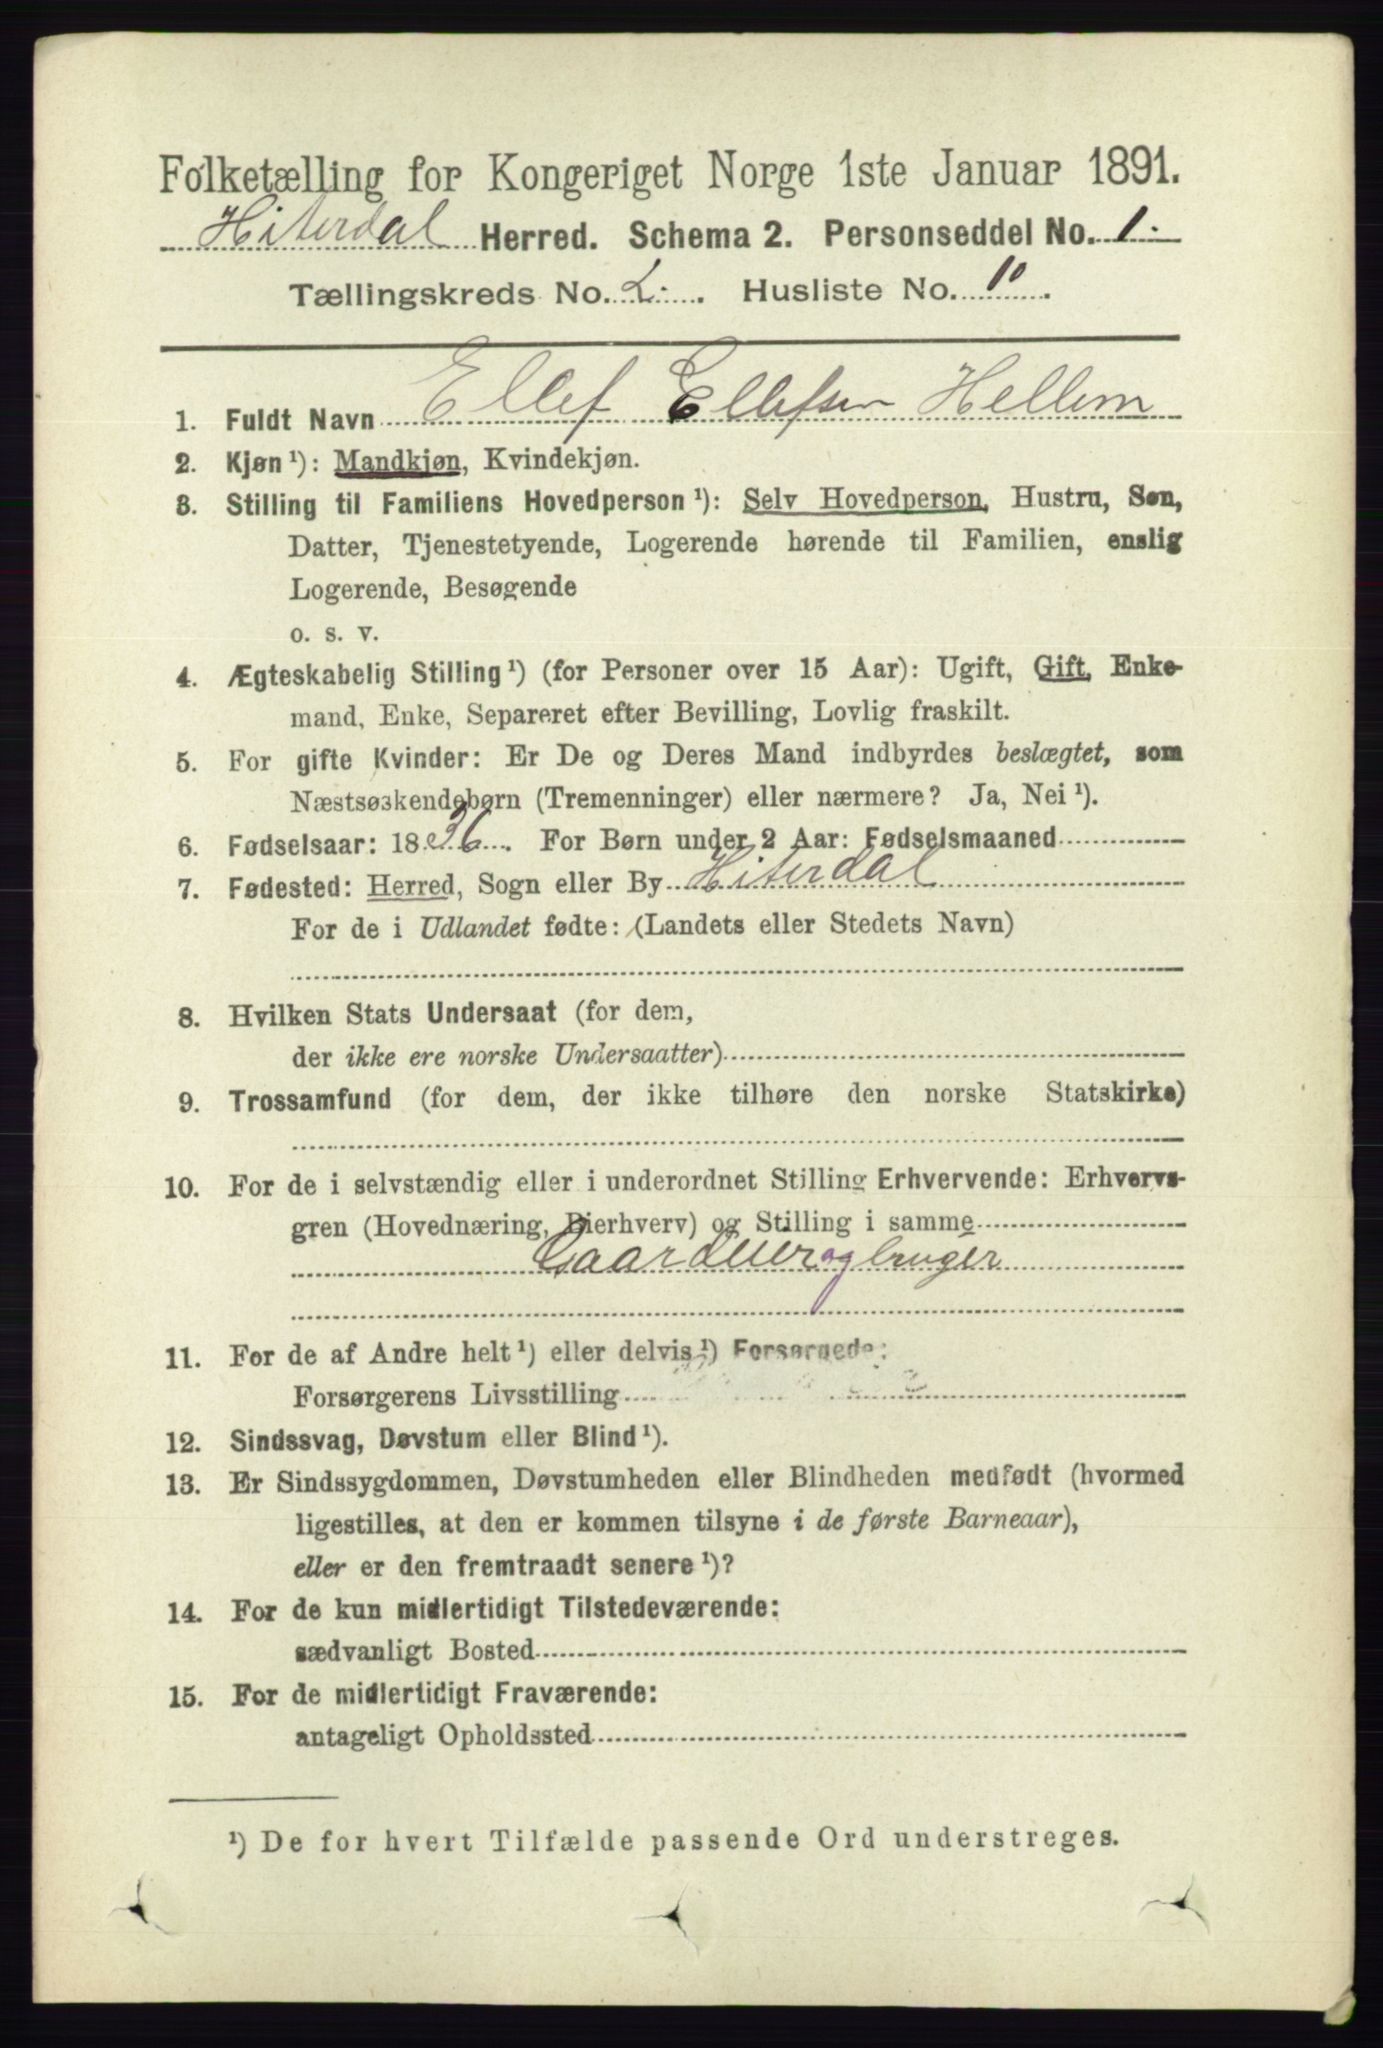 Folketælling for Kongeriget Norge 1ste Januar 1891.
Hiterdal Herred. Schema 2. Personseddel No. 1.
Tællingskreds No. 2. Husliste No. 10.
1. Fuldt Navn Ellef Ellefsen Hellem
2. Kjøn¹): Mandkjøn, Kvindekjøn.
3. Stilling til Familiens Hovedperson¹): Selv Hovedperson, Hustru, Søn,
Datter, Tjenestetyende, Logerende hørende til Familien, enslig
Logerende, Besøgende
o. s. v.
4. Ægteskabelig Stilling¹) (for Personer over 15 Aar): Ugift, Gift, Enke-
mand, Enke, Separeret efter Bevilling, Lovlig fraskilt.
5. For gifte Kvinder: Er De og Deres Mand indbyrdes beslægtet, som
Næstsøskendebørn (Tremenninger) eller nærmere? Ja, Nei¹).
6. Fødselsaar: 1836. For Børn under 2 Aar: Fødselsmaaned
7. Fødested: Herred, Sogn eller By Hiterdal
For de i Udlandet fødte: (Landets eller Stedets Navn)
8. Hvilken Stats Undersaat (for dem,
der ikke ere norske Undersaatter)
9. Trossamfund (for dem, der ikke tilhøre den norske Statskirke)
10. For de i selvstændig eller i underordnet Stilling Erhvervende: Erhvervs-
gren (Hovednæring, Bierhverv) og Stilling i samme
Gaardeier og bruger
11. For de af Andre helt¹) eller delvis¹) Forsørgede:
Forsørgerens Livsstilling
12. Sindssvag, Døvstum eller Blind¹).
13. Er Sindssygdommen, Døvstumheden eller Blindheden medfødt (hvormed
ligestilles, at den er kommen tilsyne i de første Barneaar),
eller er den fremtraadt senere¹)?
14. For de kun midlertidigt Tilstedeværende:
sædvanligt Bosted
15. For de midlertidigt Fraværende:
antageligt Opholdssted
¹) De for hvert Tilfælde passende Ord understreges.